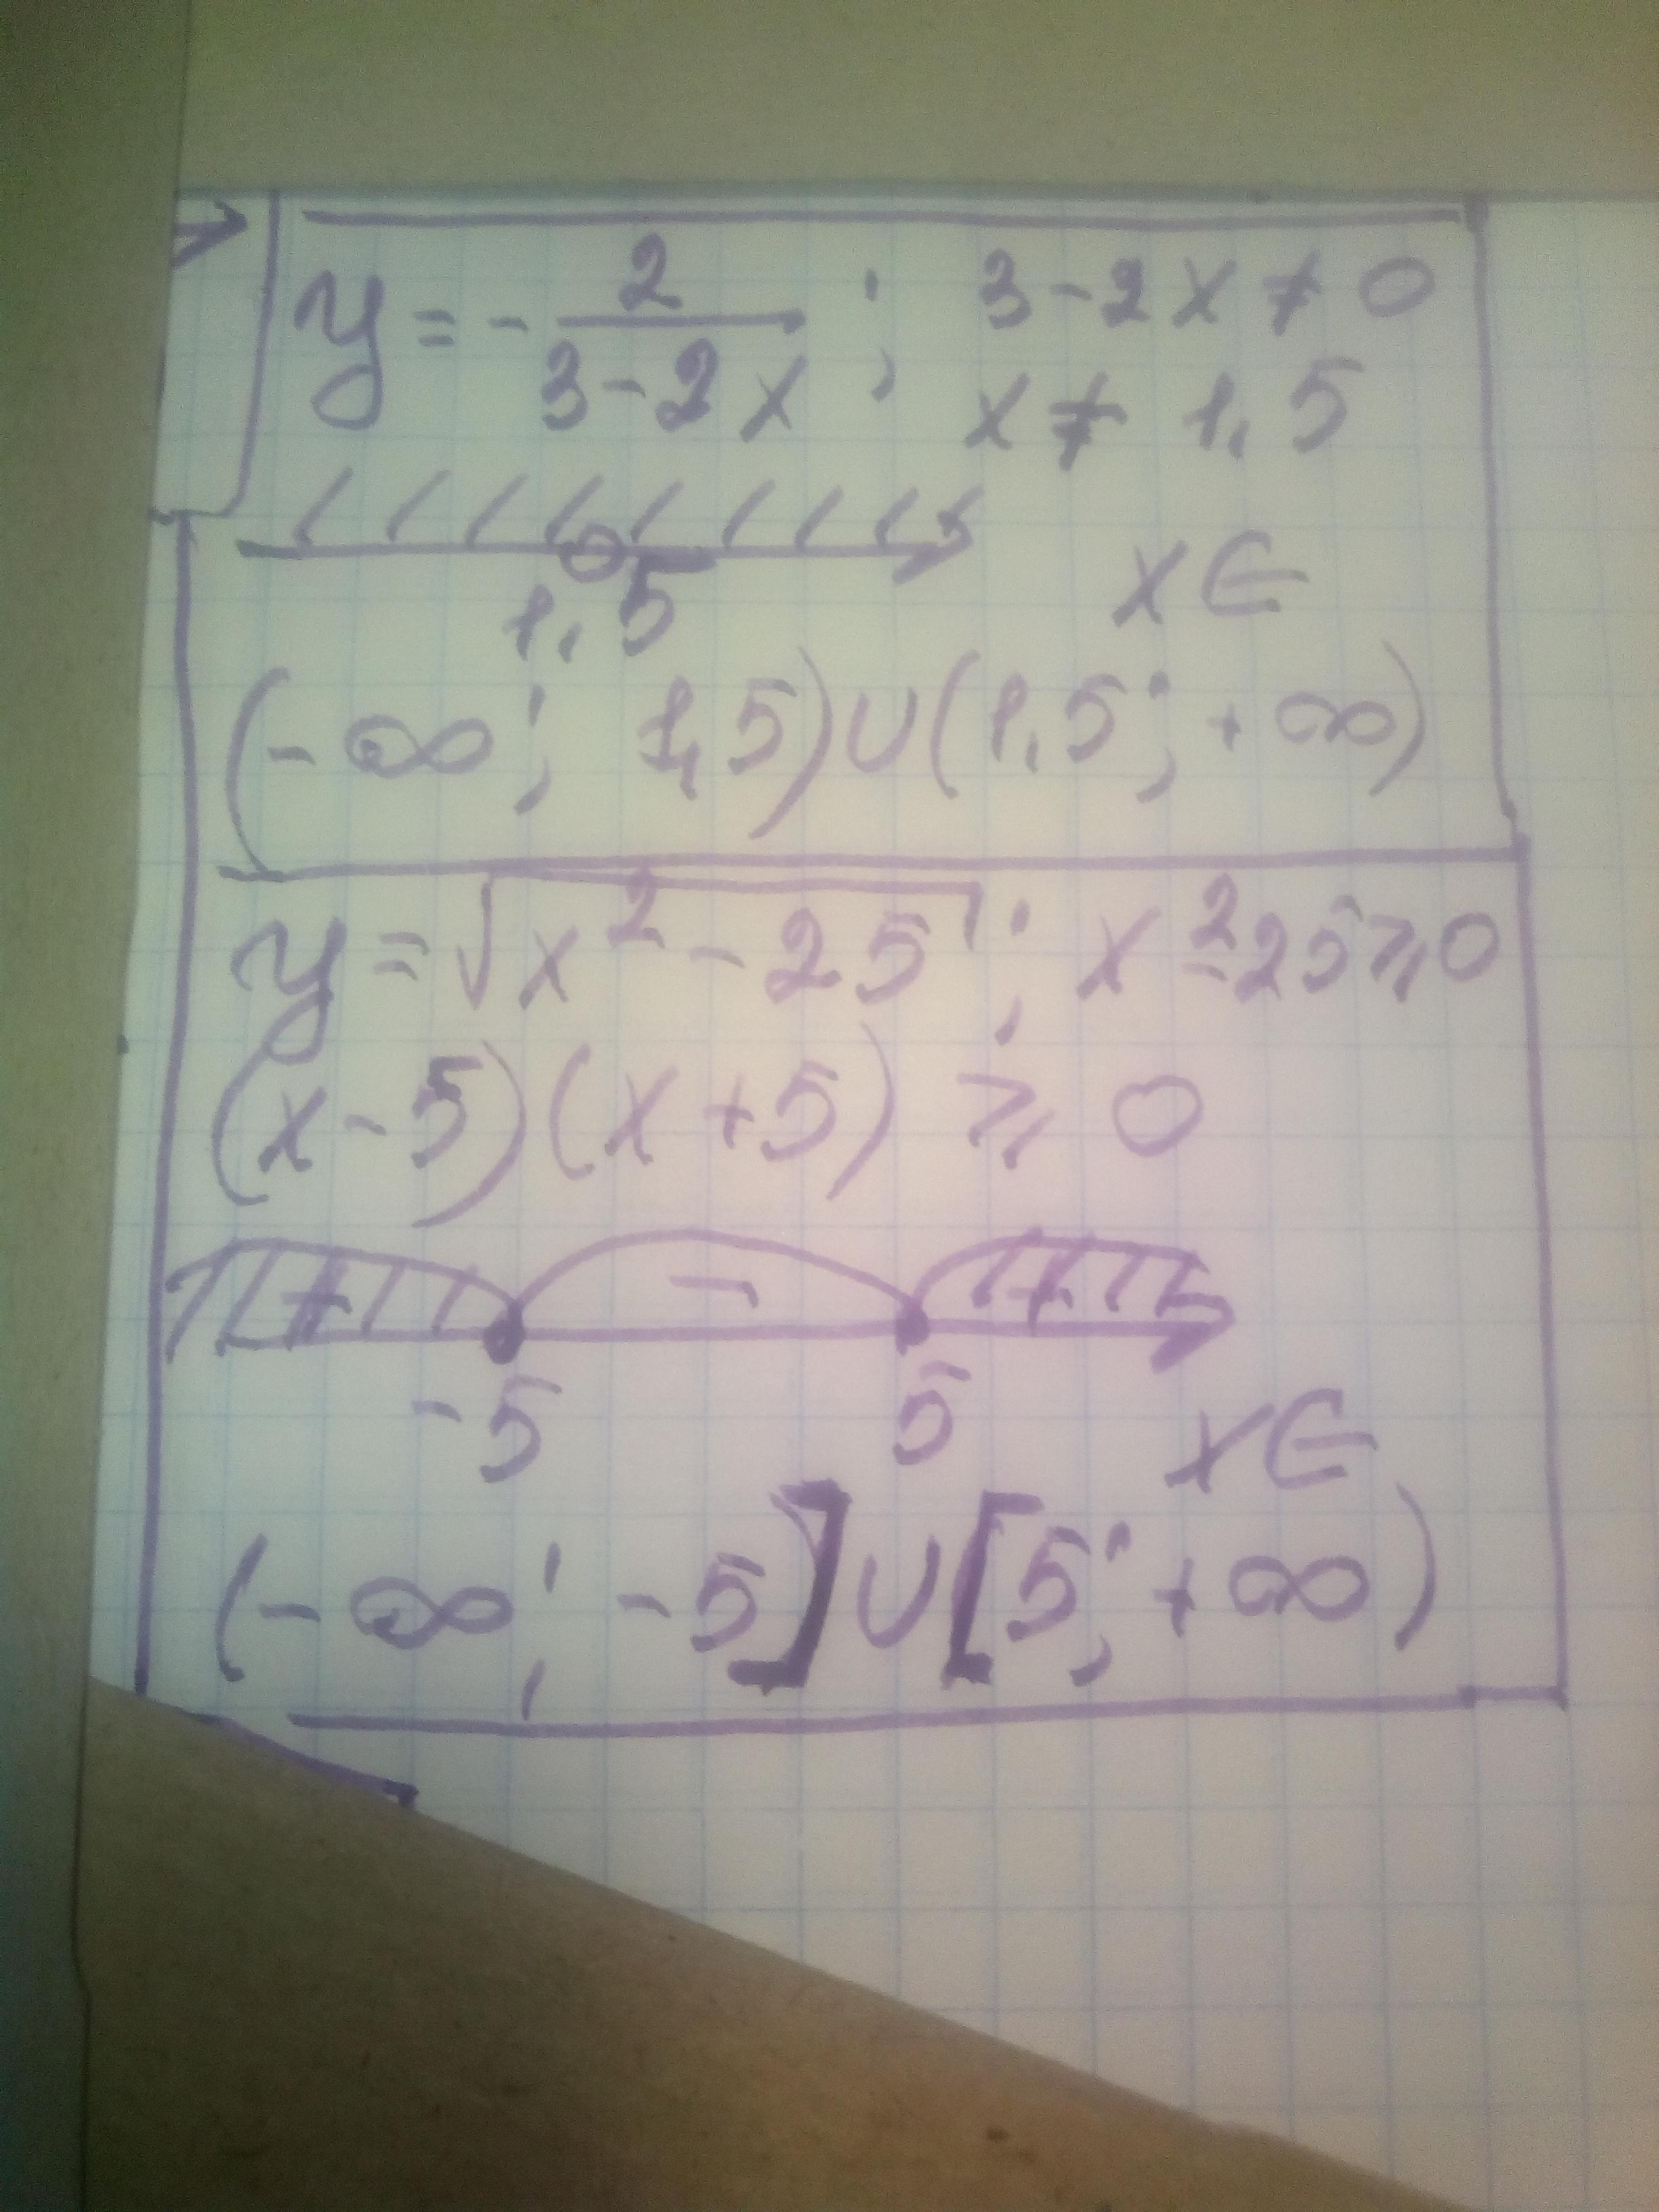 y = - 2/(3-2x) ; 3-2x ≠ 0
x ≠ 1,5
1,5
x ∈
(-∞; 1,5) ∪ (1,5; +∞)
y = √(x² - 25) ; x² - 25 ⩾ 0
(x - 5)(x + 5) ⩾ 0
+ - +
-5 5
x ∈
(-∞; -5] ∪ [5; +∞)